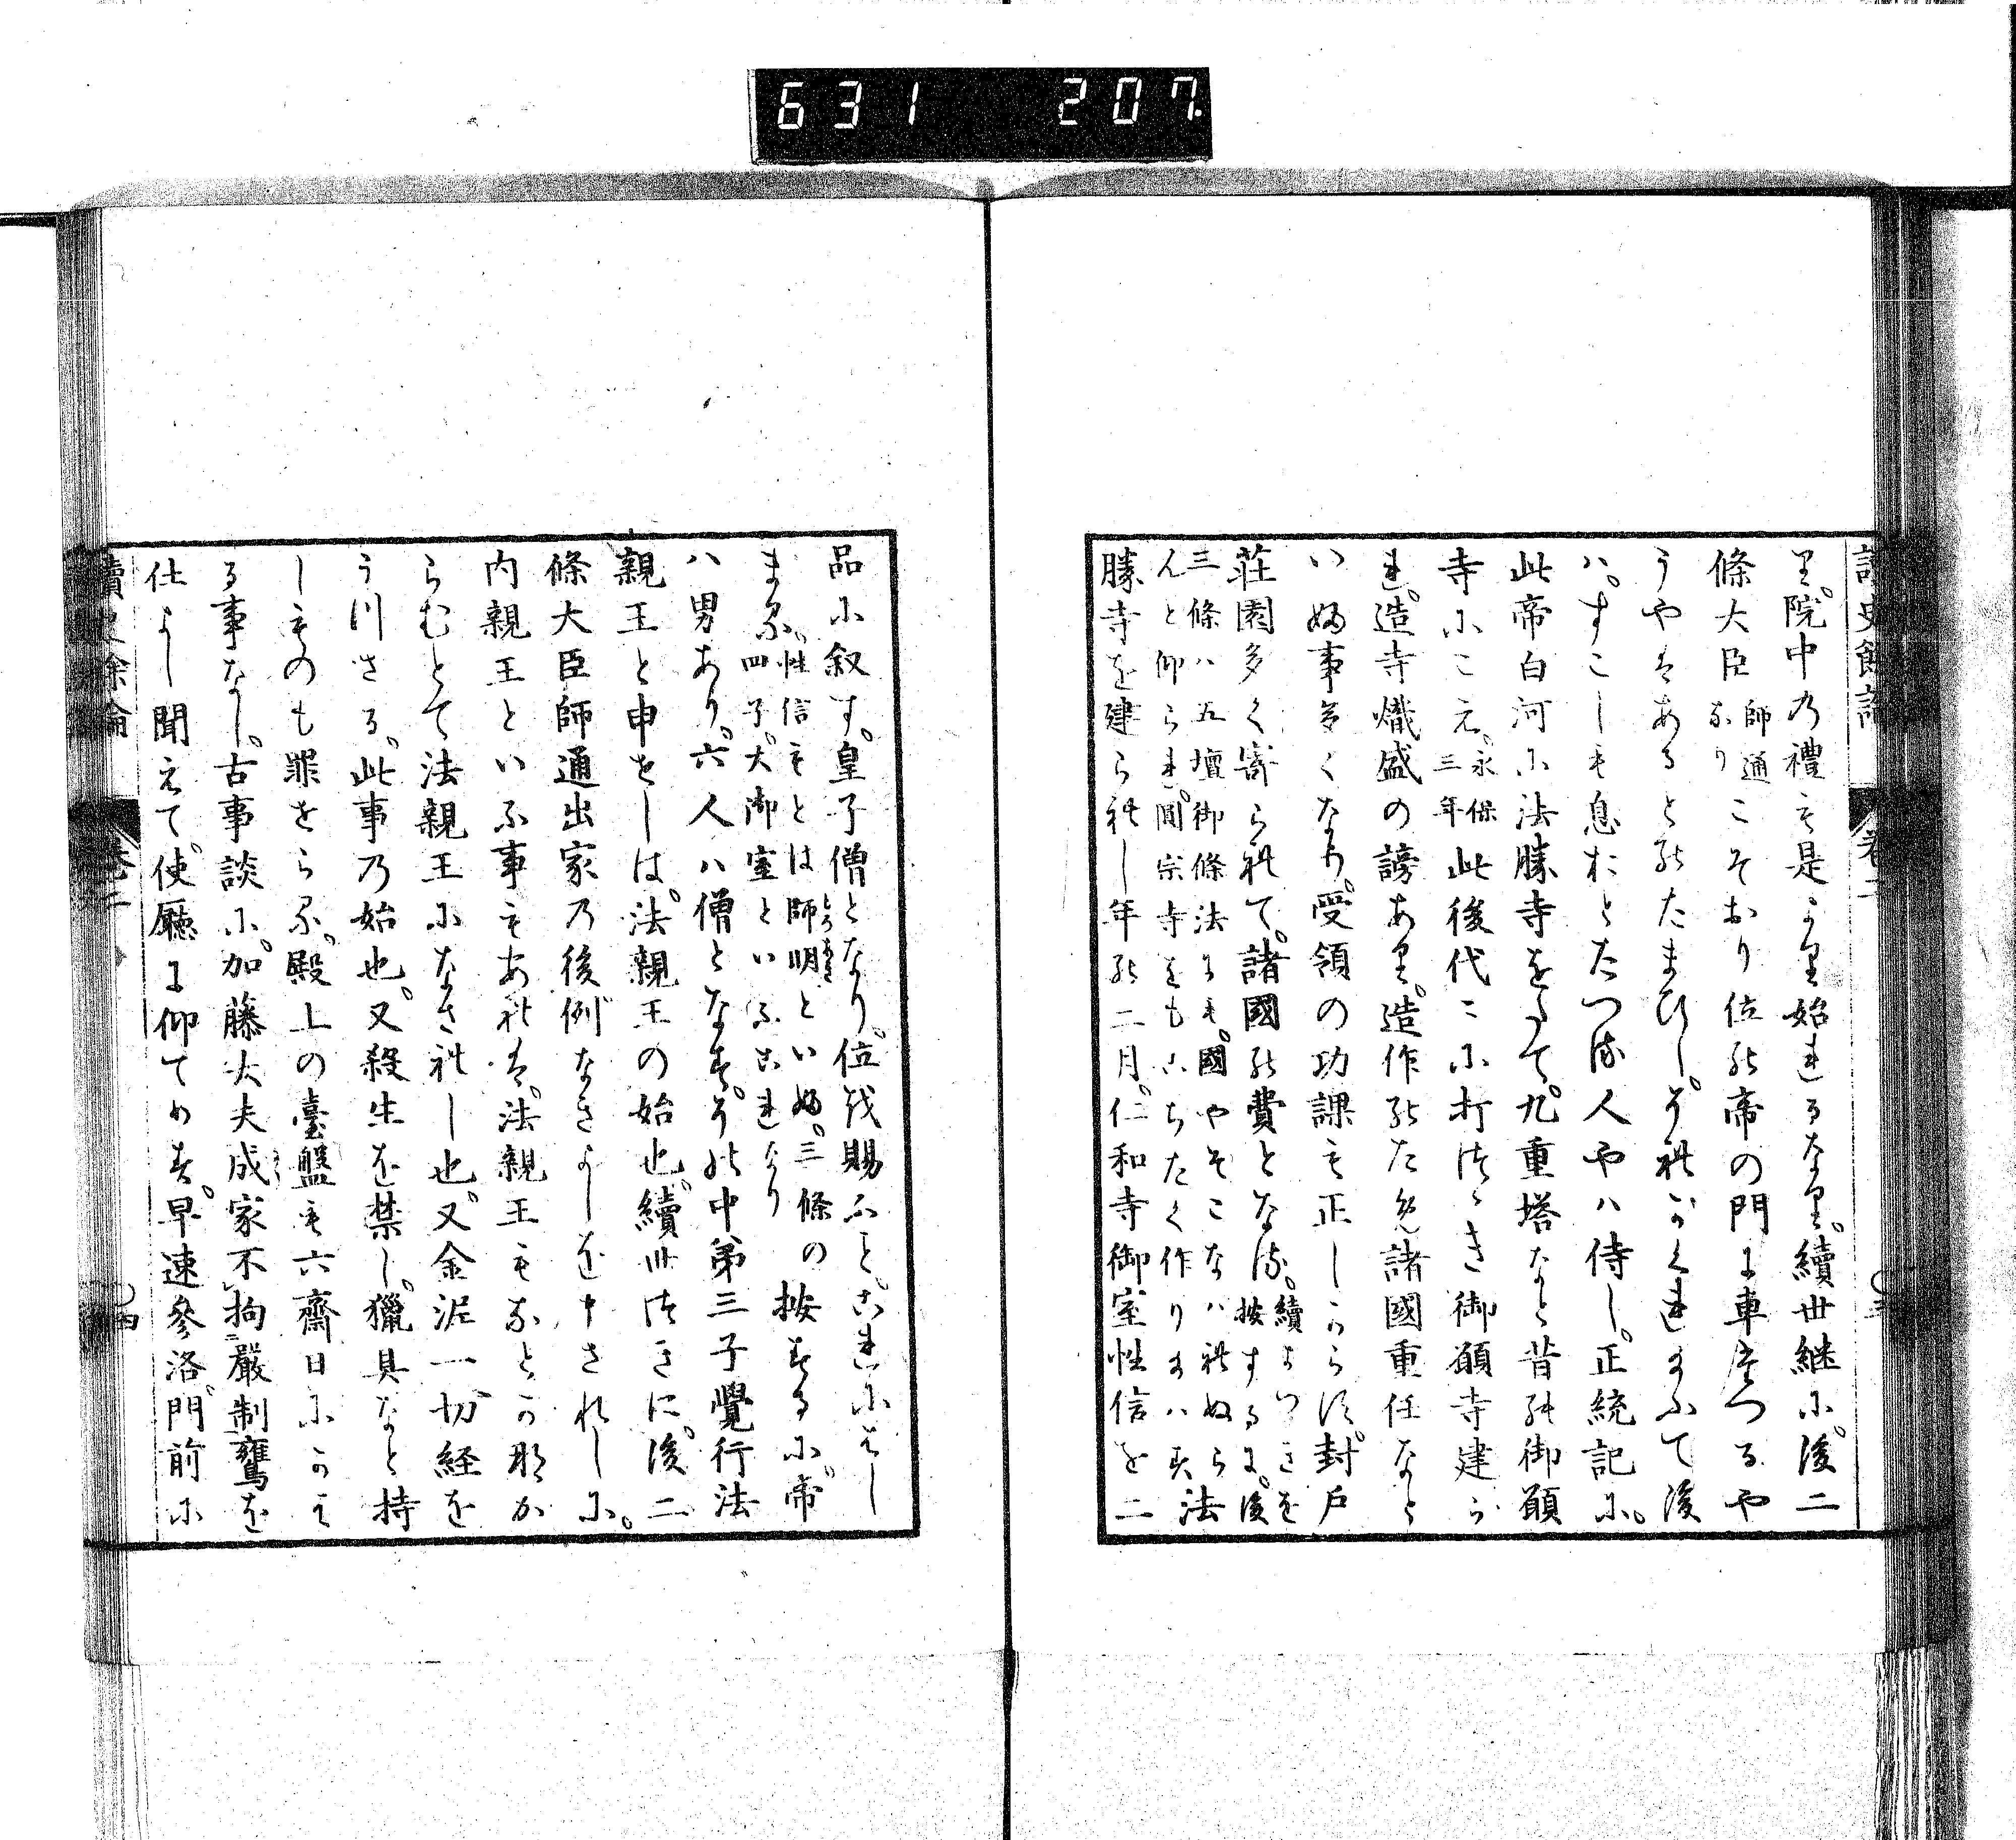 631 207.
讀史餘論 卷二
里。院中乃禮も是より始れるなり。續世継に。後二
條大臣師通なりこそおり位の帝の門に車たつるや
うやはあるとのたまひし。それかくれ給ふて後
ハ。すこしも息おとたつる人やハ侍し。正統記に。
此帝白河に法勝寺を立て。九重塔なと昔の御願
寺にこえ。永保三年此後代ことに打つゝき御願寺建ら
れ。造寺熾盛の謗あり。造作のため諸國重任なと
いふ事多くなり。受領の功課も正しからす。封戸
荘園多く寄られて。諸國の費となる。續よつきを按するに。後
三條ハ五壇御修法にも。國やそこなハれぬら
んと仰られ。圓宗寺をもこちたく作り給ハす法
勝寺を建られし年の二月。仁和寺御室性信を二
品に叙す。皇子僧となり。位を賜ふこと。これにはし
まる。性信もとは師明といふ。三條の四子。大御室といふこれなり按するに。帝
八男あり。六人ハ僧となる。その中第三子覺行法
親王と申せしは。法親王の始也。續世つきに。後二
條大臣師通出家乃後例なきよしを申されしに。
内親王といふ事もあれは。法親王もなとか那か
らむとて法親王になされし也。又金泥一切経を
うつさる。此事乃始也。又殺生を禁し。獵具なと持
しものも罪せらる。殿上の臺盤も六齋日にかは
る事なし。古事談に。加藤大夫成家不拘嚴制鷹を
仕よし聞えて。使廳に仰てめす。早速參洛。門前に
讀史餘論 卷二 四